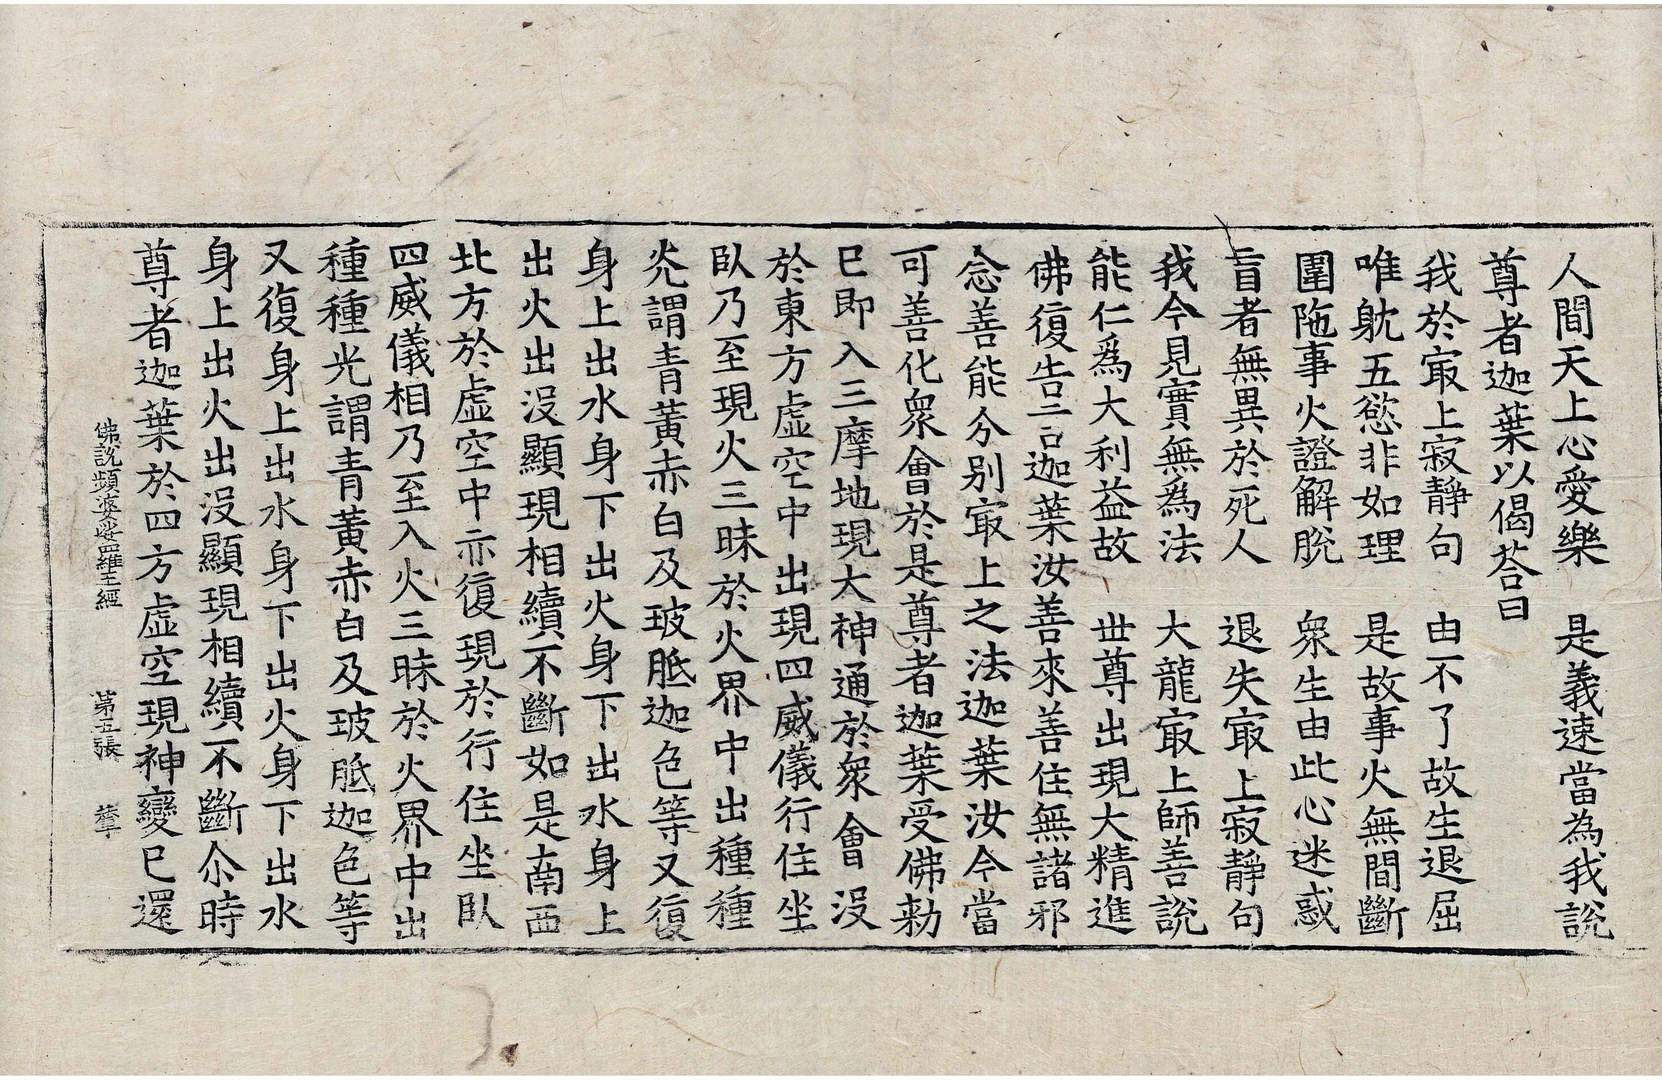 人間天上心愛樂　是義速當為我說
尊者迦葉以偈荅曰
我於㝡上寂靜句　由不了故生退屈
唯躭五慾非如理　是故事火無間斷
圍陁事火證解脫　衆生由此心迷惑
盲者無異於死人　退失㝡上寂靜句
我今見實無為法　大龍㝡上師善說
能仁爲大利益故　世尊出現大精進
佛復告言迦葉汝善來善住無諸邪
念善能分別㝡上之法迦葉汝今當
可善化衆會於是尊者迦葉受佛勑
已即入三摩地現大神通於衆會沒
於東方虛空中出現四威儀行住坐
臥乃至現火三昧於火界中出種種
光謂青黃赤白及玻胝迦色等又復
身上出水身下出火身下出水身上
出火出沒顯現相續不斷如是南西
北方於虛空中亦復現於行住坐臥
四威儀相乃至入火三昧於火界中出
種種光謂青黃赤白及玻胝迦色等
又復身上出水身下出火身下出水
身上出火出沒顯現相續不斷尒時
尊者迦葉於四方虛空現神變已還
佛說頻婆娑羅王經　第五張